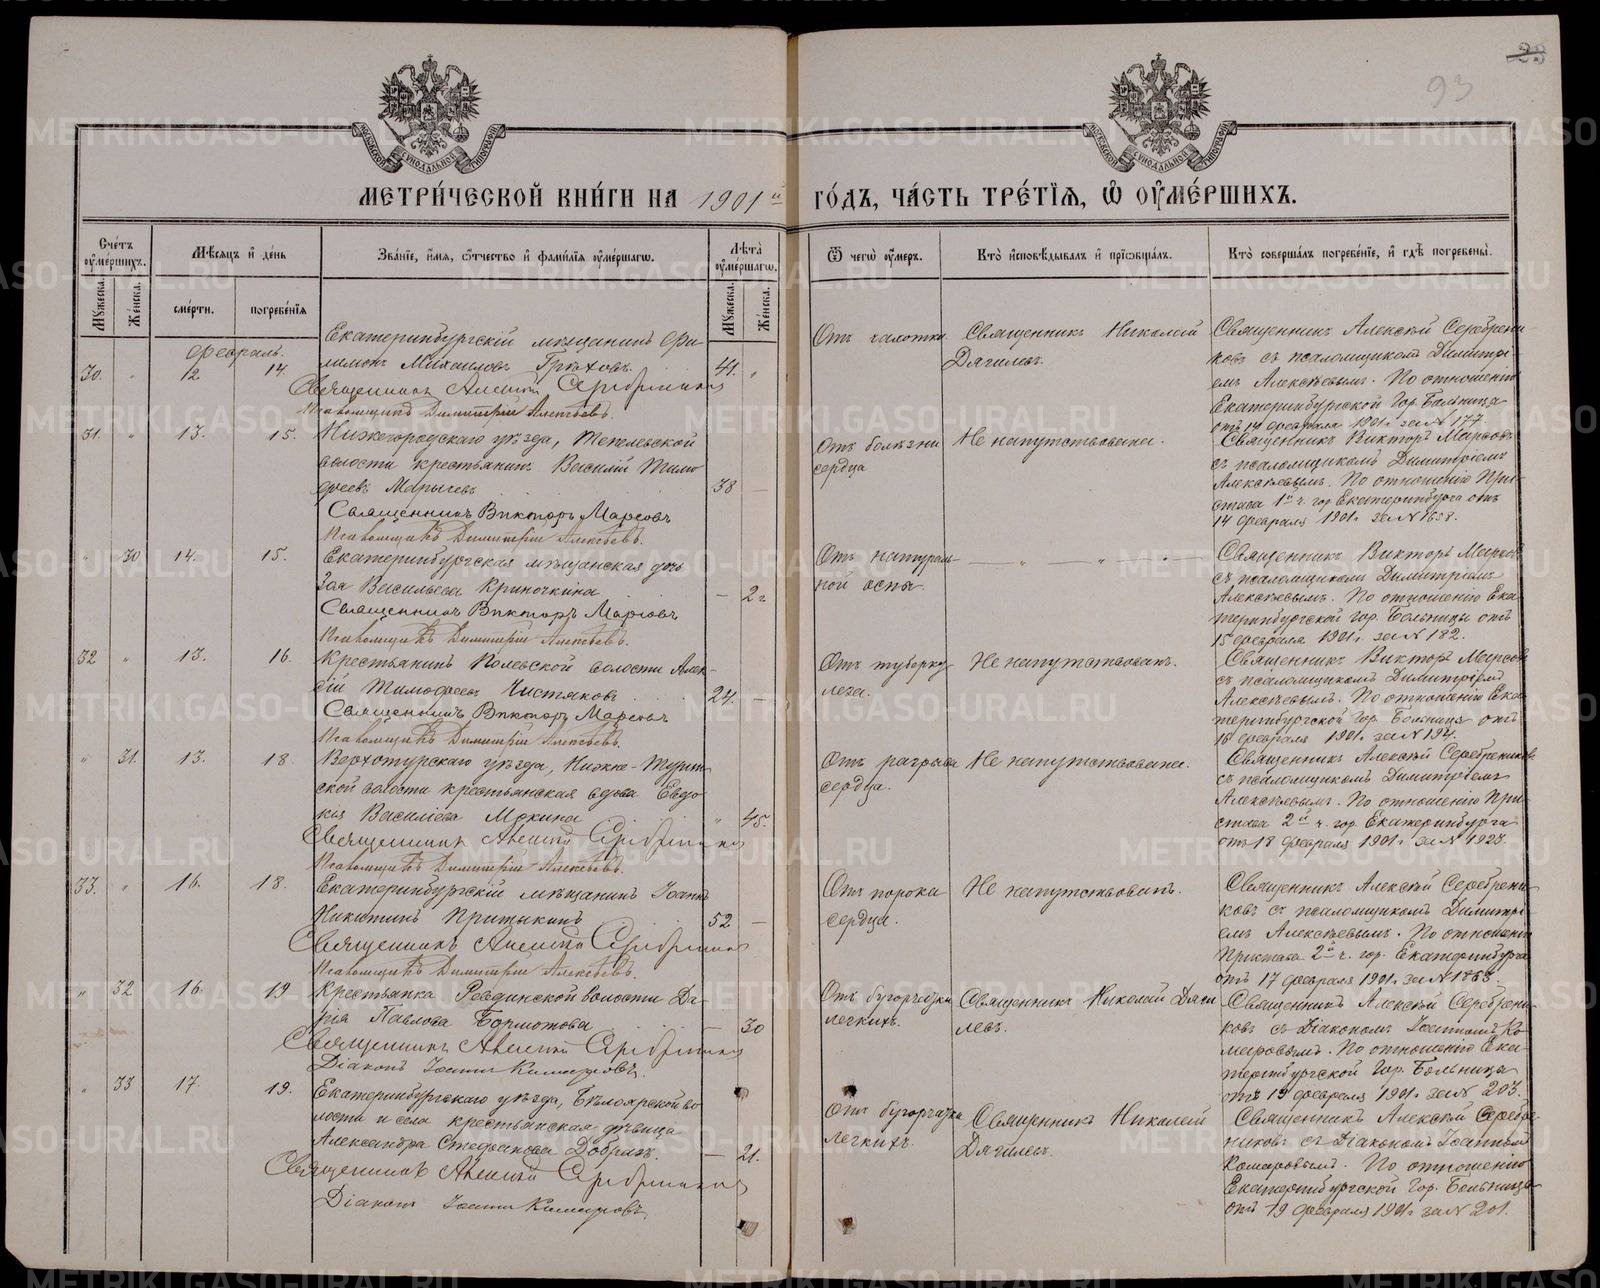 93
МОСКОВСКОЙ СѶНОДАЛЬНОЙ ТИПОГРАФІИ
МОСКОВСКОЙ СѶНОДАЛЬНОЙ ТИПОГРАФІИ
МЕТРИ́ЧЕСКОЙ КНИ́ГИ НА 1901й ГО́ДЪ, ЧА́СТЬ ТРЕ́ТІЯ, Ѡ҆ ОУ҆МЕ́РШИХЪ.
Счетъ оумершихъ.
Мужеска.
Женска.
Мѣсяцъ и день
смерти.
погребенія
Званіе, имя, отчество и фамилія оумершагѡ.
Лѣта оумершагѡ.
Мужеска.
Женска.
Ѿ чегѡ оумеръ.
Кто исповѣдывалъ и пріобщалъ.
Кто совершалъ погребеніе, и гдѣ погребены.
февраль.
30. " 12 14
Екатеринбургскій мѣщанинъ Фи-
лимонъ Михаиловъ Грѣховъ. 41. "
Священникъ Алексѣй Серебрениковъ
Псаломщикъ Димитрій Алексѣевъ.
Отъ чахотки
Священникъ Николай
Дягилевъ.
Священникъ Алексѣй Серебрени-
ковъ съ псаломщикомъ Димитрі-
емъ Алексѣевымъ. По отношенію
Екатеринбургской Гор. Больницы
отъ 14 февраля 1901 г. за № 177.
31. " 13. 15.
Нижегородскаго уѣзда,
волости крестьянинъ Василій Тимо-
феевъ 38 —
Священникъ Викторъ Марсовъ
Псаломщикъ Димитрій Алексѣевъ.
Отъ болѣзни
сердца
Не напутствована.
Священникъ Викторъ Марсовъ
съ псаломщикомъ Димитріемъ
Алексѣевымъ. По отношенію При-
става 1й ч. гор. Екатеринбурга отъ
14 февраля 1901 г. за № 1658.
" 30 14. 15.
Екатеринбургская мѣщанская дочь
Зоя Васильева Криночкина — 2 г
Священникъ Викторъ Марсовъ
Псаломщикъ Димитрій Алексѣевъ.
Отъ натураль-
ной оспы.
— " — " —
Священникъ Викторъ Марсовъ
съ псаломщикомъ Димитріемъ
Алексѣевымъ. По отношенію Ека-
теринбургской гор. Больницы отъ
15 февраля 1901 г. за № 182.
32 " 13. 16.
Крестьянинъ Полевской волости Алек-
сій Тимофеевъ Чистяковъ 24. —
Священникъ Викторъ Марсовъ
Псаломщикъ Димитрій Алексѣевъ.
Отъ туберку-
леза.
Не напутствованъ.
Священникъ Викторъ Марсовъ
съ псаломщикомъ Димитріемъ
Алексѣевымъ. По отношенію Ека-
теринбургской Гор. Больницы отъ
16 февраля 1901 г. за № 194.
" 31. 13. 18.
Верхотурскаго уѣзда, Нижне-Турин-
ской волости крестьянская вдова Евдо-
кія Василіева Мокина " 45.
Священникъ Алексѣй Серебрениковъ
Псаломщикъ Димитрій Алексѣевъ.
Отъ разрыва
сердца.
Не напутствована.
Священникъ Алексѣй Серебрениковъ
съ псаломщикомъ Димитріемъ
Алексѣевымъ. По отношенію При-
става 2й ч. гор. Екатеринбурга
отъ 18 февраля 1901 г. за № 1923.
33. " 16. 18.
Екатеринбургскій мѣщанинъ Іоаннъ
Никитинъ Притыкинъ 52 —
Священникъ Алексѣй Серебрениковъ
Псаломщикъ Димитрій Алексѣевъ.
Отъ порока
сердца.
Не напутствованъ.
Священникъ Алексѣй Серебрени-
ковъ съ псаломщикомъ Димитрі-
емъ Алексѣевымъ. По отношенію
Пристава 2й ч. гор. Екатеринбурга
отъ 17 февраля 1901 г. за № 1863.
" 32 16. 19
Крестьянка Ревдинской волости Да-
рія Павлова Бормотова — 30
Священникъ Алексѣй Серебрениковъ
Діаконъ Іоаннъ Комаровъ.
Отъ бугорчатки
легкихъ.
Священникъ Николай Дяги-
левъ.
Священникъ Алексѣй Серебрени-
ковъ съ Діакономъ Іоанномъ Ко-
маровымъ. По отношенію Ека-
теринбургской Гор. Больницы
отъ 19 февраля 1901 г. за № 203.
" 33 17. 19.
Екатеринбургскаго уѣзда, Бѣлоярской во-
лости и села крестьянская дѣвица
Александра Стефанова Добрыхъ. — 21.
Священникъ Алексѣй Серебрениковъ
Діаконъ Іоаннъ Комаровъ.
Отъ бугорчатки
легкихъ.
Священникъ Николай
Дягилевъ.
Священникъ Алексѣй Серебре-
никовъ съ Діакономъ Іоанномъ
Комаровымъ. По отношенію
Екатеринбургской Гор. Больницы
отъ 19 февраля 1901 г. за № 201.
METRIKI.GASO-URAL.RU